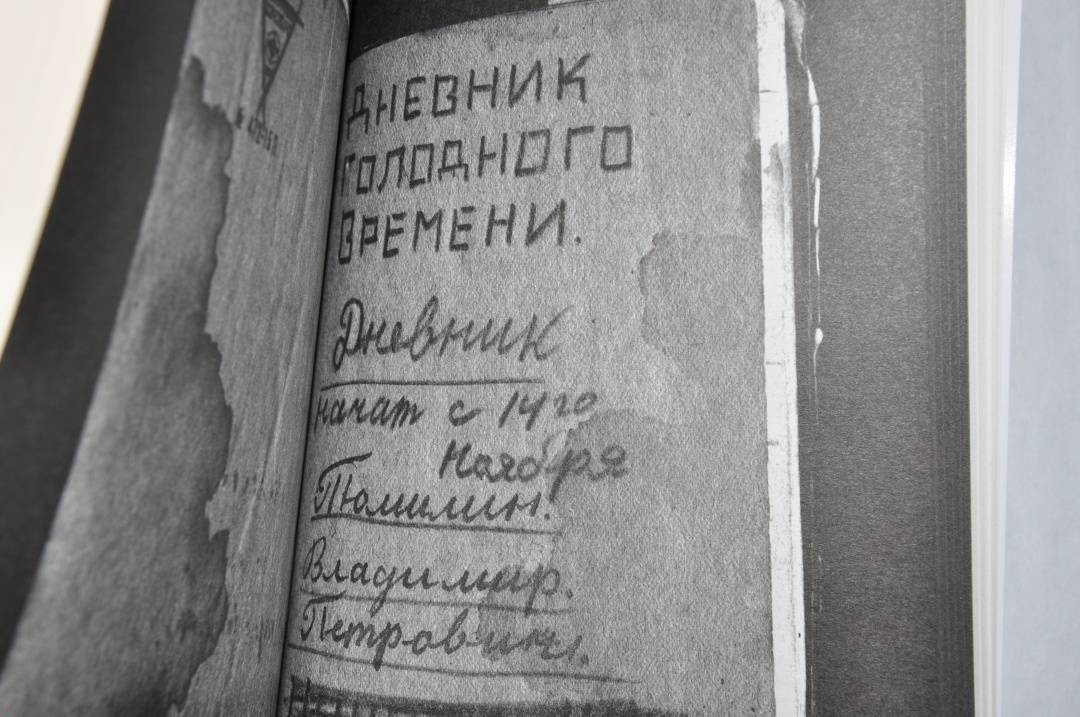 ДНЕВНИК
ГОЛОДНОГО
ВРЕМЕНИ.
Дневник
начат с 14го
Ноября
Томилин.
Владимир.
Петрович.